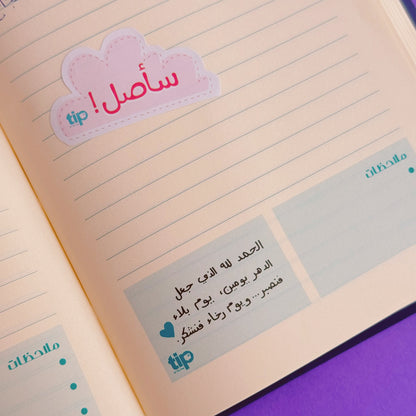 سأصل!
tip
ملاحظات
الحمد لله الذي جعل
الدهر يومين، يوم بلاء
فنصبر... ويوم رخاء فنشكر.
tip
ملاحظات